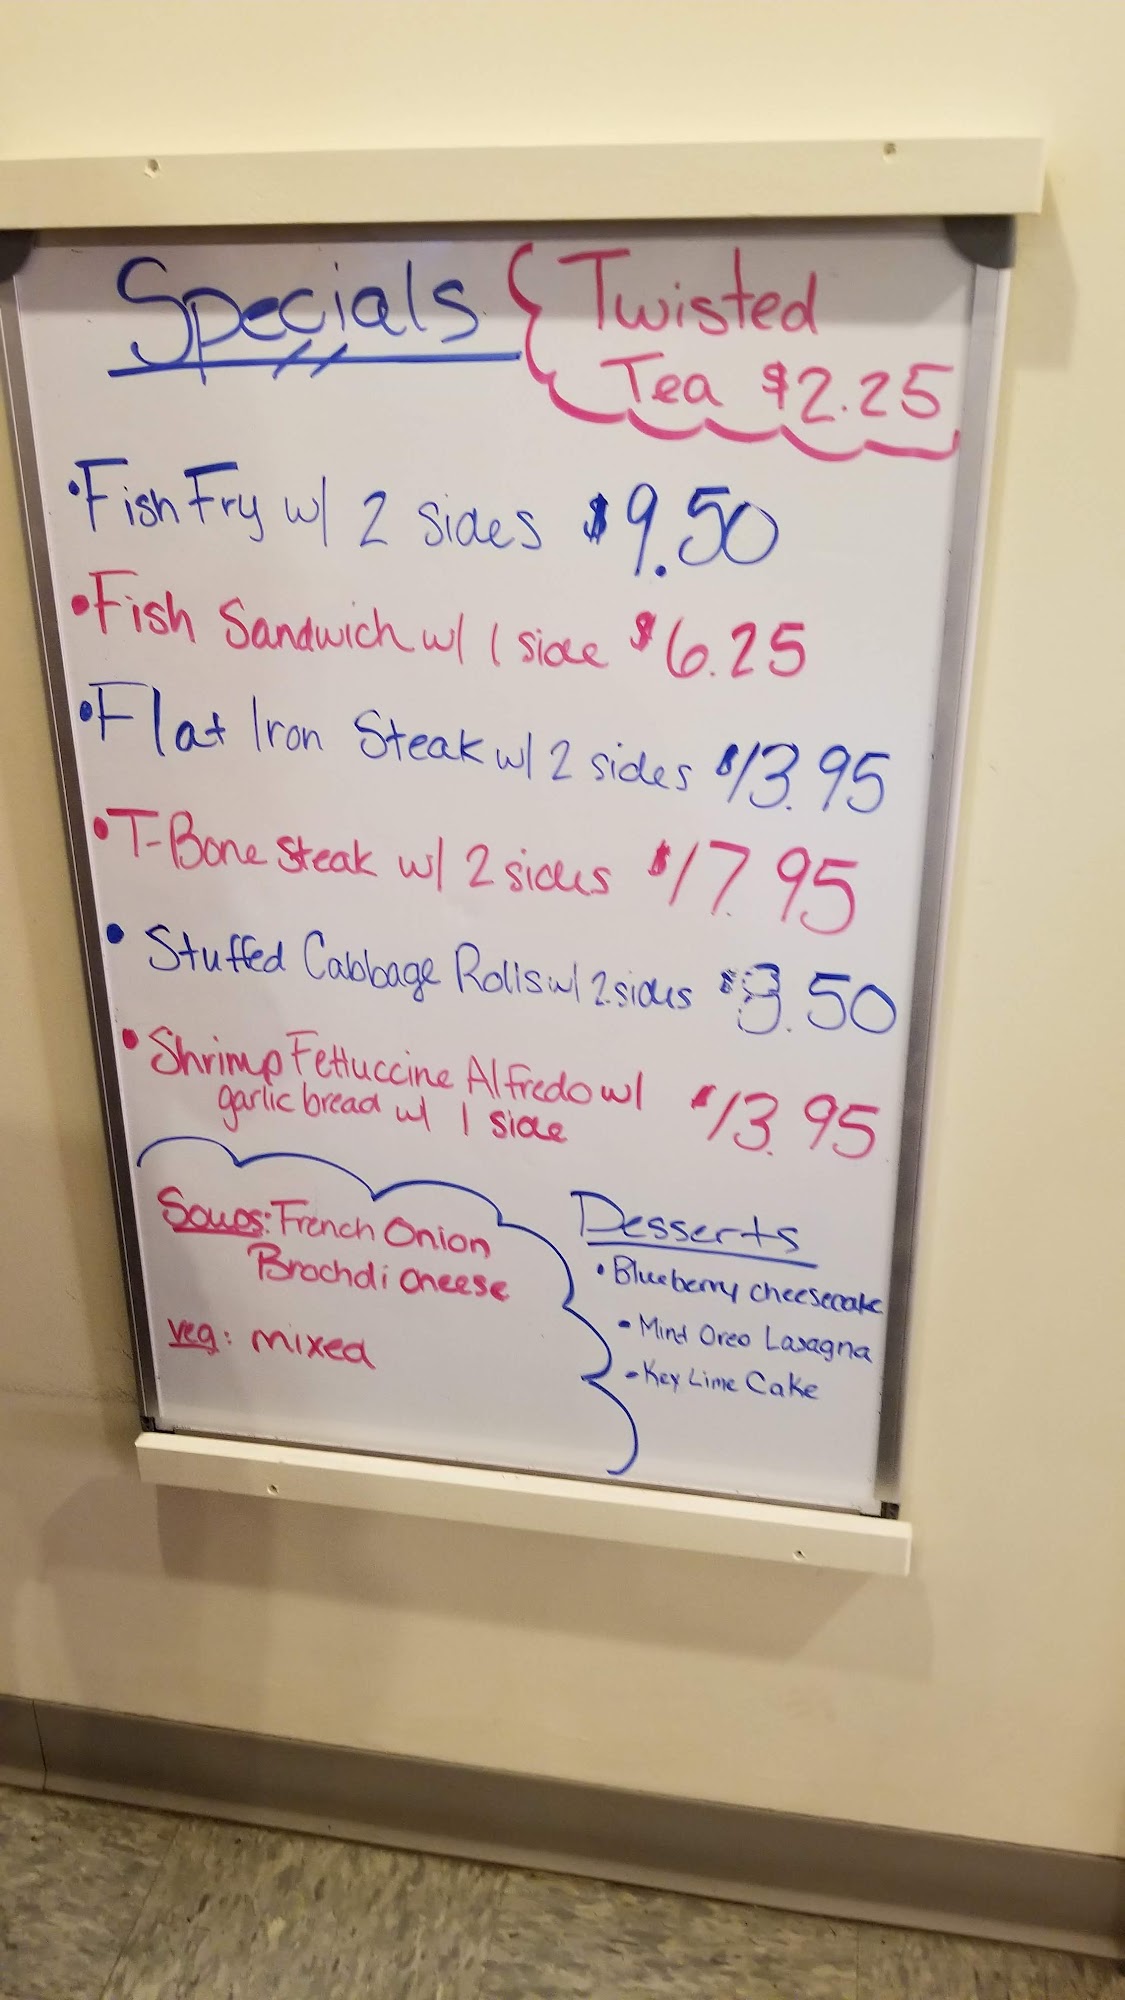 Specials
Twisted
Tea $2.25
• Fish Fry w/ 2 sides $9.50
• Fish Sandwich w/ 1 side $6.25
• Flat Iron Steak w/ 2 sides $13.95
• T-Bone Steak w/ 2 sides $17.95
• Stuffed Cabbage Rolls w/ 2 sides
• Shrimp Fettuccine Alfredo w/ $13.95
garlic bread w/ 1 side
Soups: French Onion
Brochdi cheese
veg: mixed
Desserts
• Blueberry cheesecake
• Mint Oreo Lasagna
• Key Lime Cake